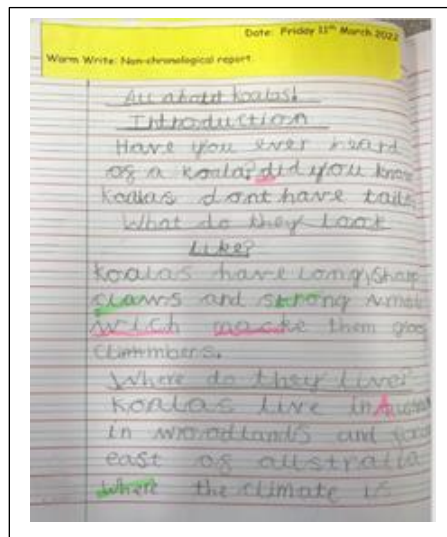 Date: Friday 11th March 2022
Warm Write: Non-chronological report.
All about koalas!
Introduction
Have you ever heard
of a koala? did you know
Koalas dont have tails
What do they look
Like?
Koalas have long, sharp
claws and strong
which them
Climmbers.
Where do they live?
Koalas live in
in woodlands and
east of
where the climate is